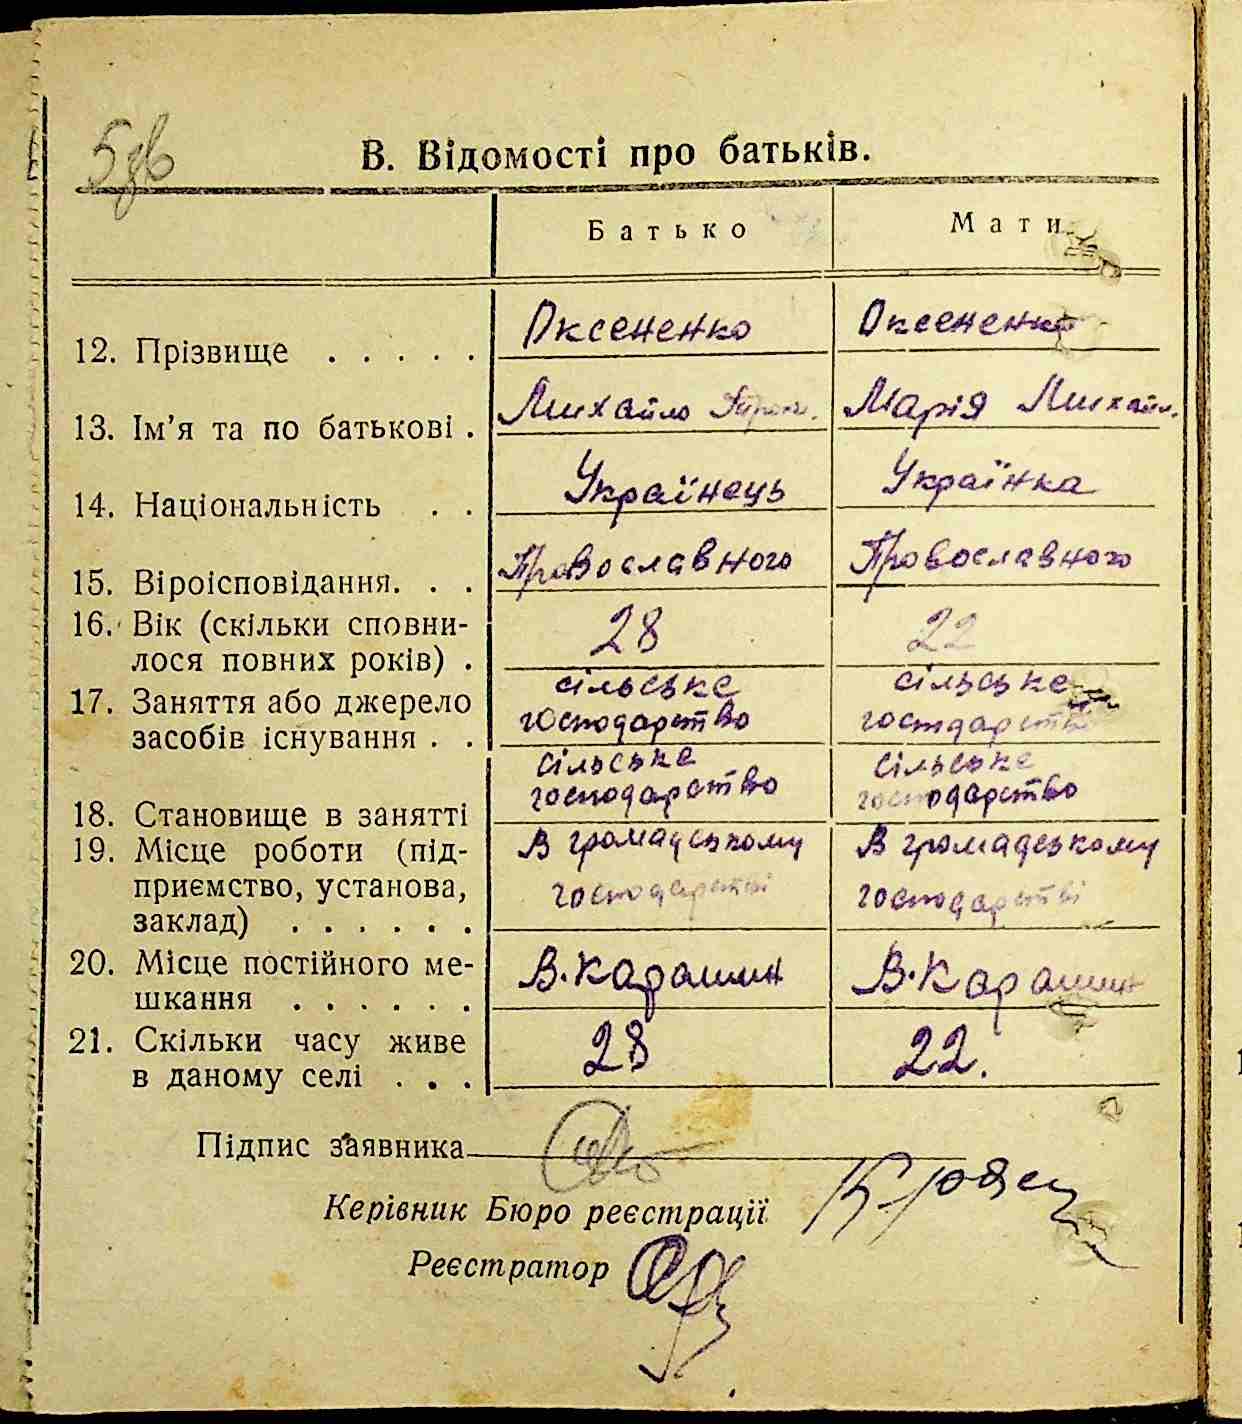 5
В. Відомості про батьків.
Батько Мати
12. Прізвище . . . . . Оксененко Оксененко
13. Ім'я та по батькові . Михайло Марія Михайл.
14. Національність . . Українець Українка
15. Віроісповідання. . . Провославного Провославного
16. Вік (скільки сповни-
лося повних років) . 28 22
17. Заняття або джерело сільське сільське
засобів існування . . господарство господарство
сільське сільське
18. Становище в занятті господарство господарство
19. Місце роботи (під- В громадському В громадському
приємство, установа, господарстві господарстві
заклад) . . . . . .
20. Місце постійного ме- В.Карашин В.Карашин
шкання . . . . . .
21. Скільки часу живе 28 22.
в даному селі . . .
Підпис заявника
Керівник Бюро реєстрації
Реєстратор